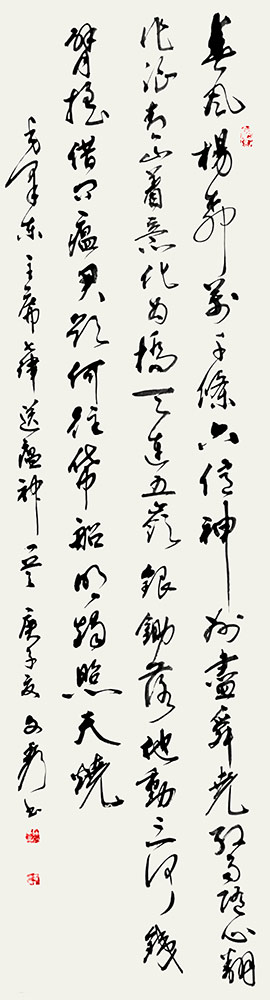 春風楊柳萬千條六億神州盡舜堯紅雨隨心翻
作浪青山着意化為橋天連五嶺銀鋤落地動三河鐵
臂搖借問瘟君欲何往紙船明燭照天燒
毛澤東主席七律送瘟神一首庚子夏文書